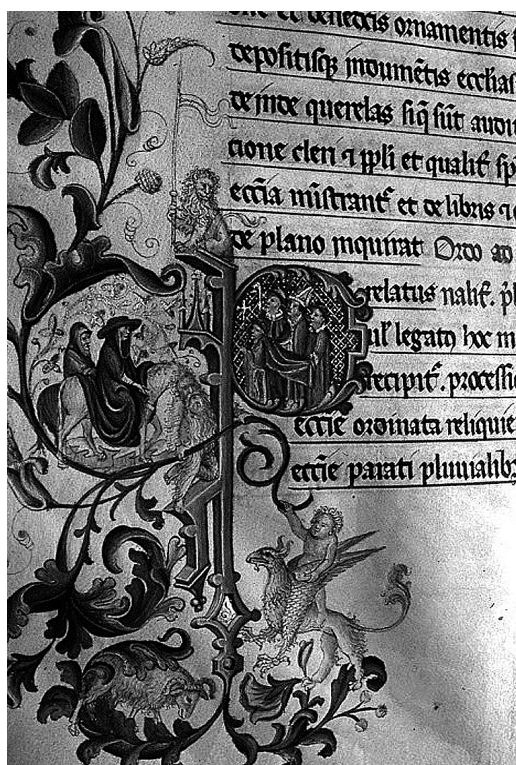 one et benedccis ornamentis
depositisqꝫ indumētis ecclias
deinde querelas siq̃ sūt audit
cione cleri ⁊ ppl̄i et qualit̃ sp
eccīa mĩstrant̃ et de libris ⁊
de plano inquirat Ordo ad
Prelatus nalit̃. p̄l
ul̃ legatꝰ hoc m
recipit̃. processi
eccīe ordinata reliquie
eccīe parati pluuialibꝫ